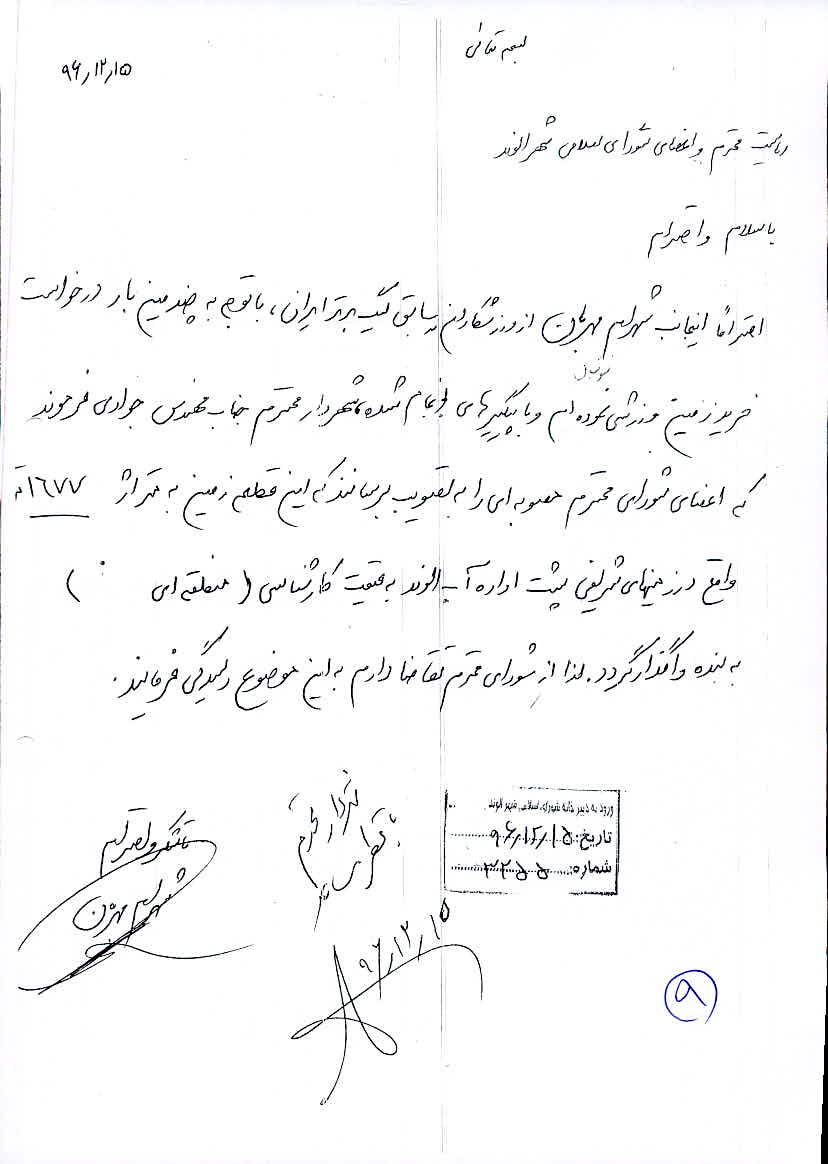 بسمه تعالی
۹۶٫۱۲٫۱۵
ریاست محترم و اعضای شورای اسلامی شهر الوند
با سلام و احترام
احتراماً اینجانب شهرام مهربان از ورزشکاران سابق لیگ برتر ایران، با توجه به چندمین بار درخواست
خرید زمین ورزشی نموده ام و با پیگیریهای انجام شده شهردار محترم جناب مهندس جوادی فرمودند
که اعضای شورای محترم مصوبه ای را به تصویب برسانند که این قطعه زمین به متراژ ۱۶۷۷
واقع در زمینهای شریفی پشت اداره آب الوند به قیمت کارشناسی ( منطقه ای )
به بنده واگذار گردد. لذا از شورای محترم تقاضا دارم به این موضوع رسیدگی فرمایند.
ورود به دبیرخانه شورای اسلامی شهر الوند
تاریخ: ۹۶/۱۲/۱۵
شماره: ۳۲۵۵
با تشکر و احترام
شهرام
شهردار محترم
۹۶/۱۲/۱۵
۹